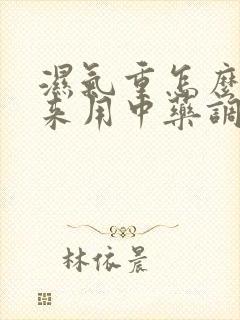 濕氣重怎麽
来用中藥調
林依晨